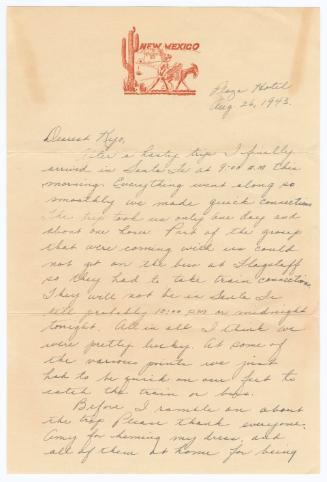 NEW MEXICO
Plaza Hotel
Aug 26, 1943.
Dearest Kiyo,
After a hasty trip I finally
arrived in Santa Fe at 9:00 A.M this
morning. Everything went along so
smoothly we made quick connections
The trip took us only one day and
about one hour Part of the group
that were coming with us could
not get on the bus at Flagstaff
so they had to take train connections
They will not be in Santa Fe
till probably 10:00 P.M or midnight
tonight. All in all I think we
were pretty lucky. At some of
the various points we just
had to be quick on our feet to
catch the train or bus.
Before I ramble on about
the trip Please thank everyone,
Amy for hemming my dress, and
all of them at home for being